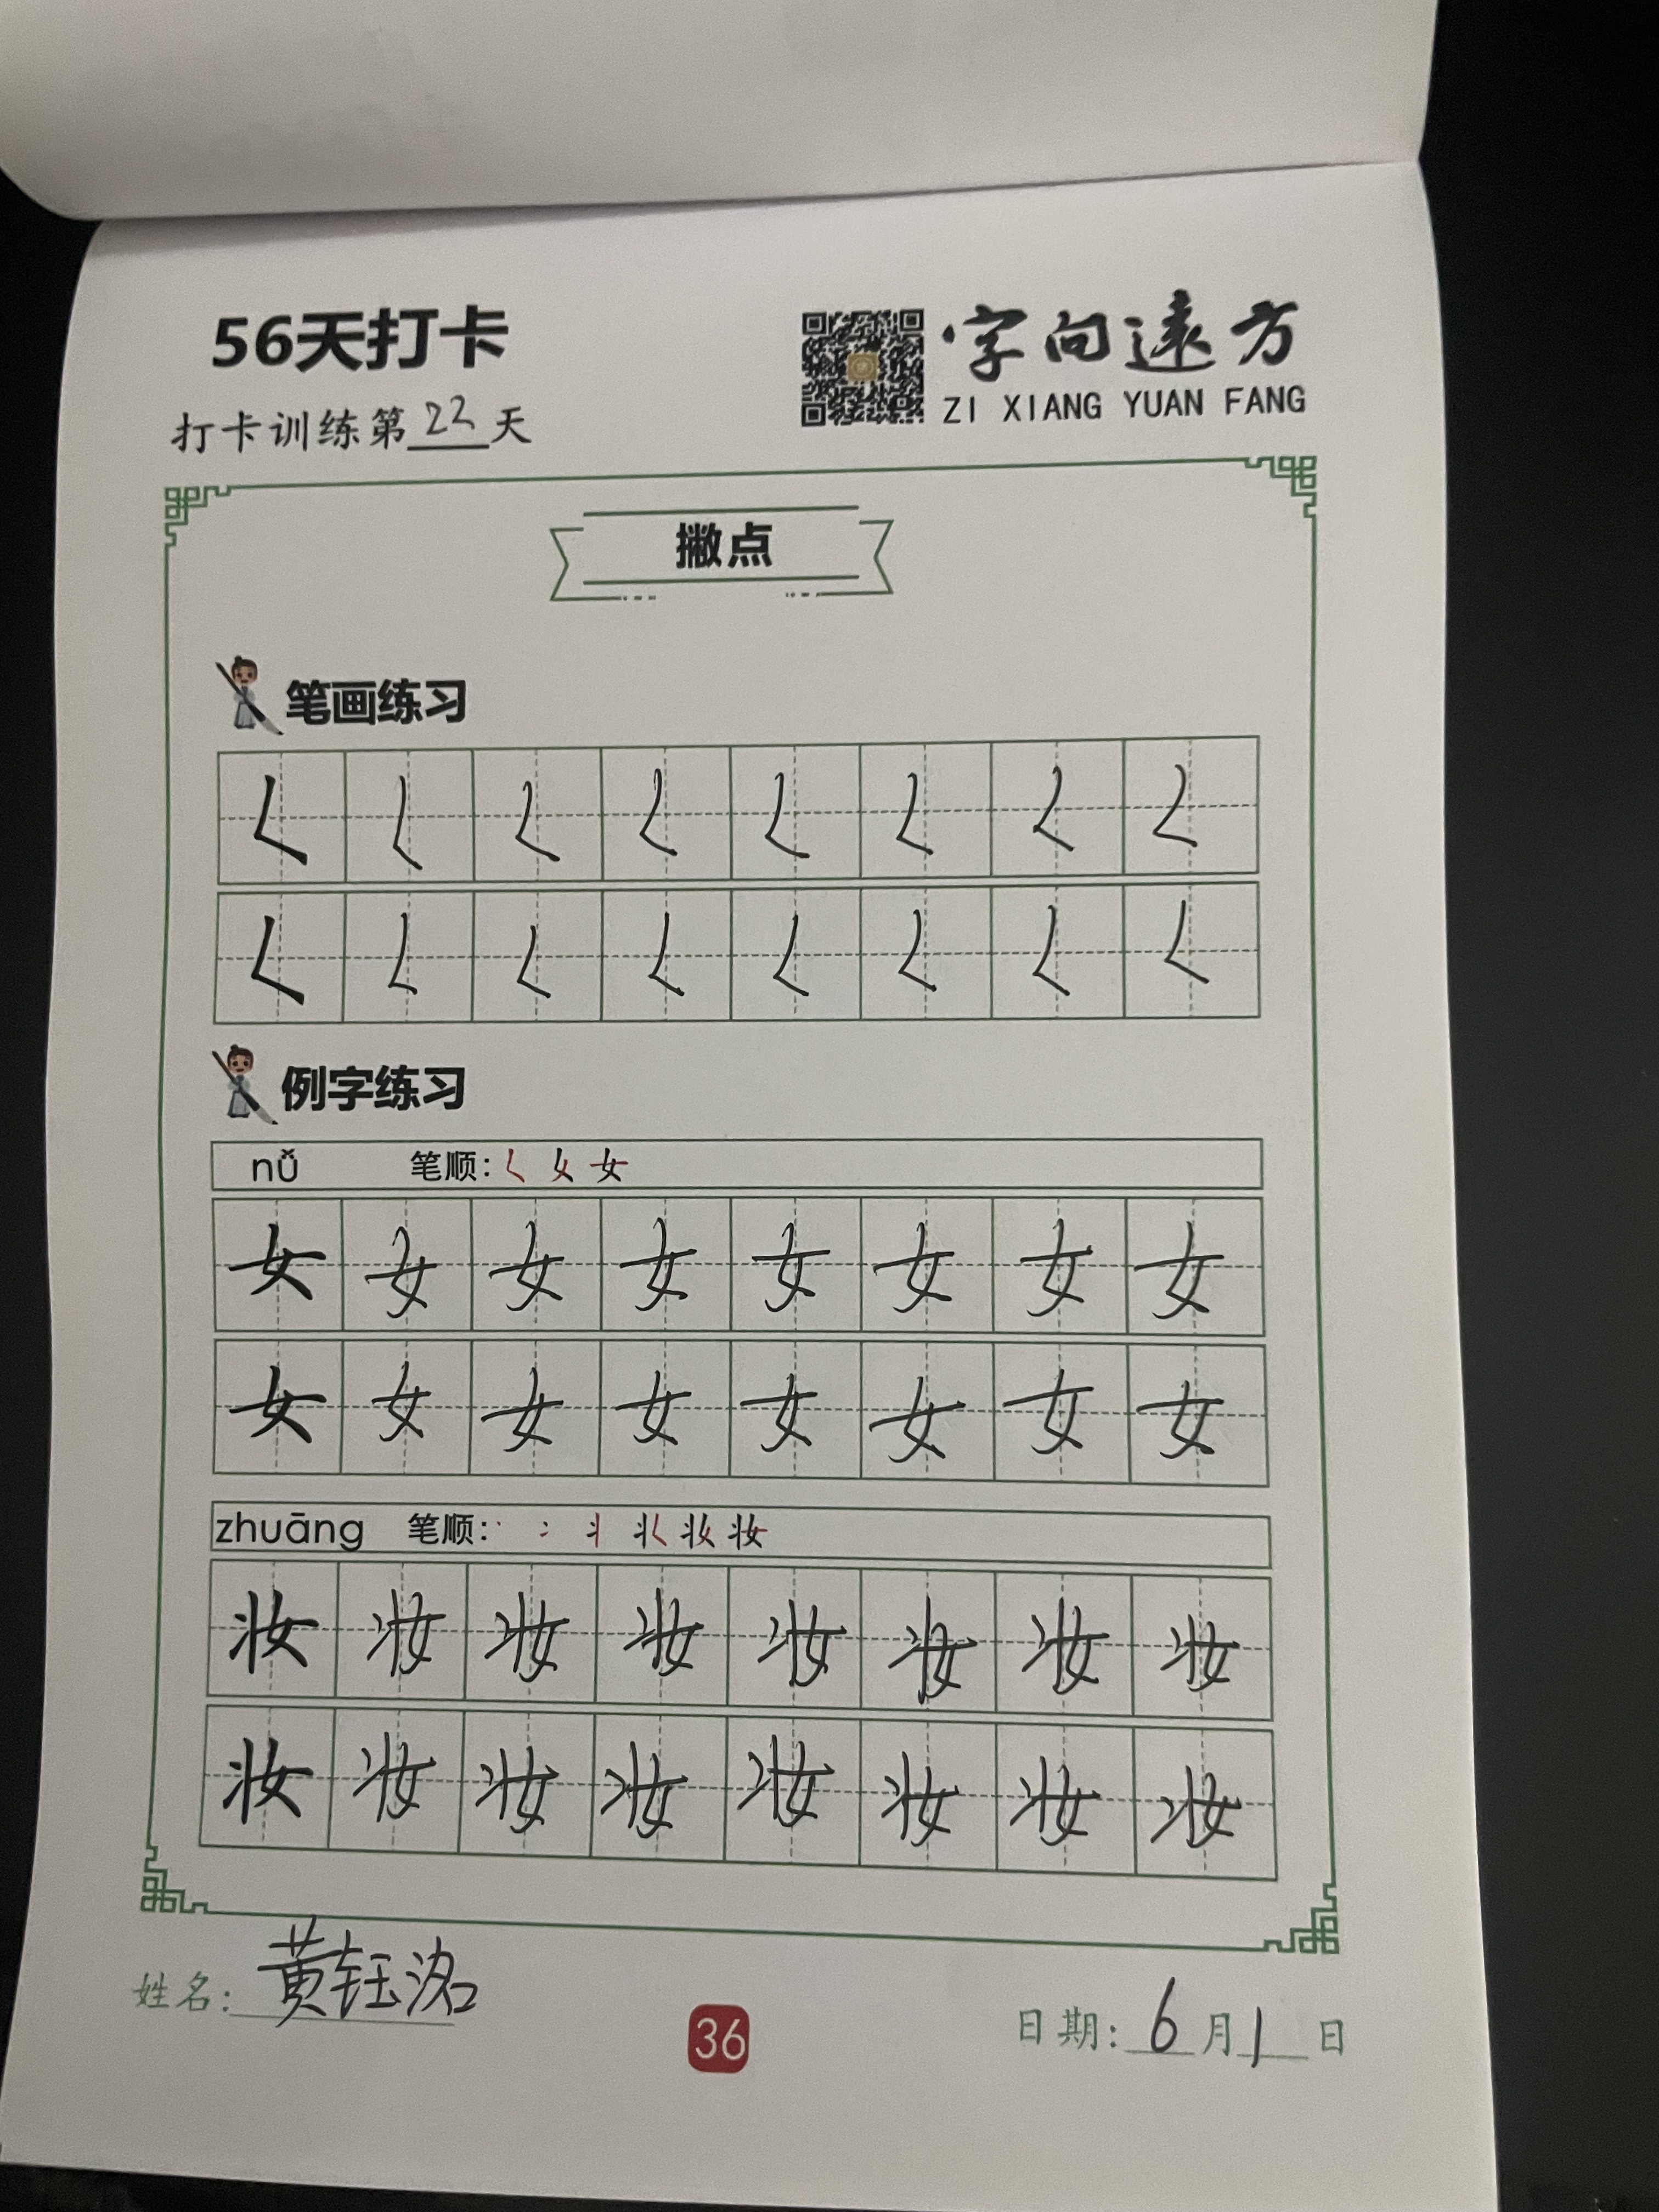 56天打卡
字向远方
ZI XIANG YUAN FANG
打卡训练第22天
撇点
笔画练习
𡿨 𡿨 𡿨 𡿨 𡿨 𡿨 𡿨 𡿨
𡿨 𡿨 𡿨 𡿨 𡿨 𡿨 𡿨 𡿨
例字练习
nǚ 笔顺:
女 女 女 女 女 女 女 女
女 女 女 女 女 女 女 女
zhuāng 笔顺:
妆 妆 妆 妆 妆 妆 妆 妆
妆 妆 妆 妆 妆 妆 妆 妆
姓名: 黄钰洺
36
日期: 6月1日